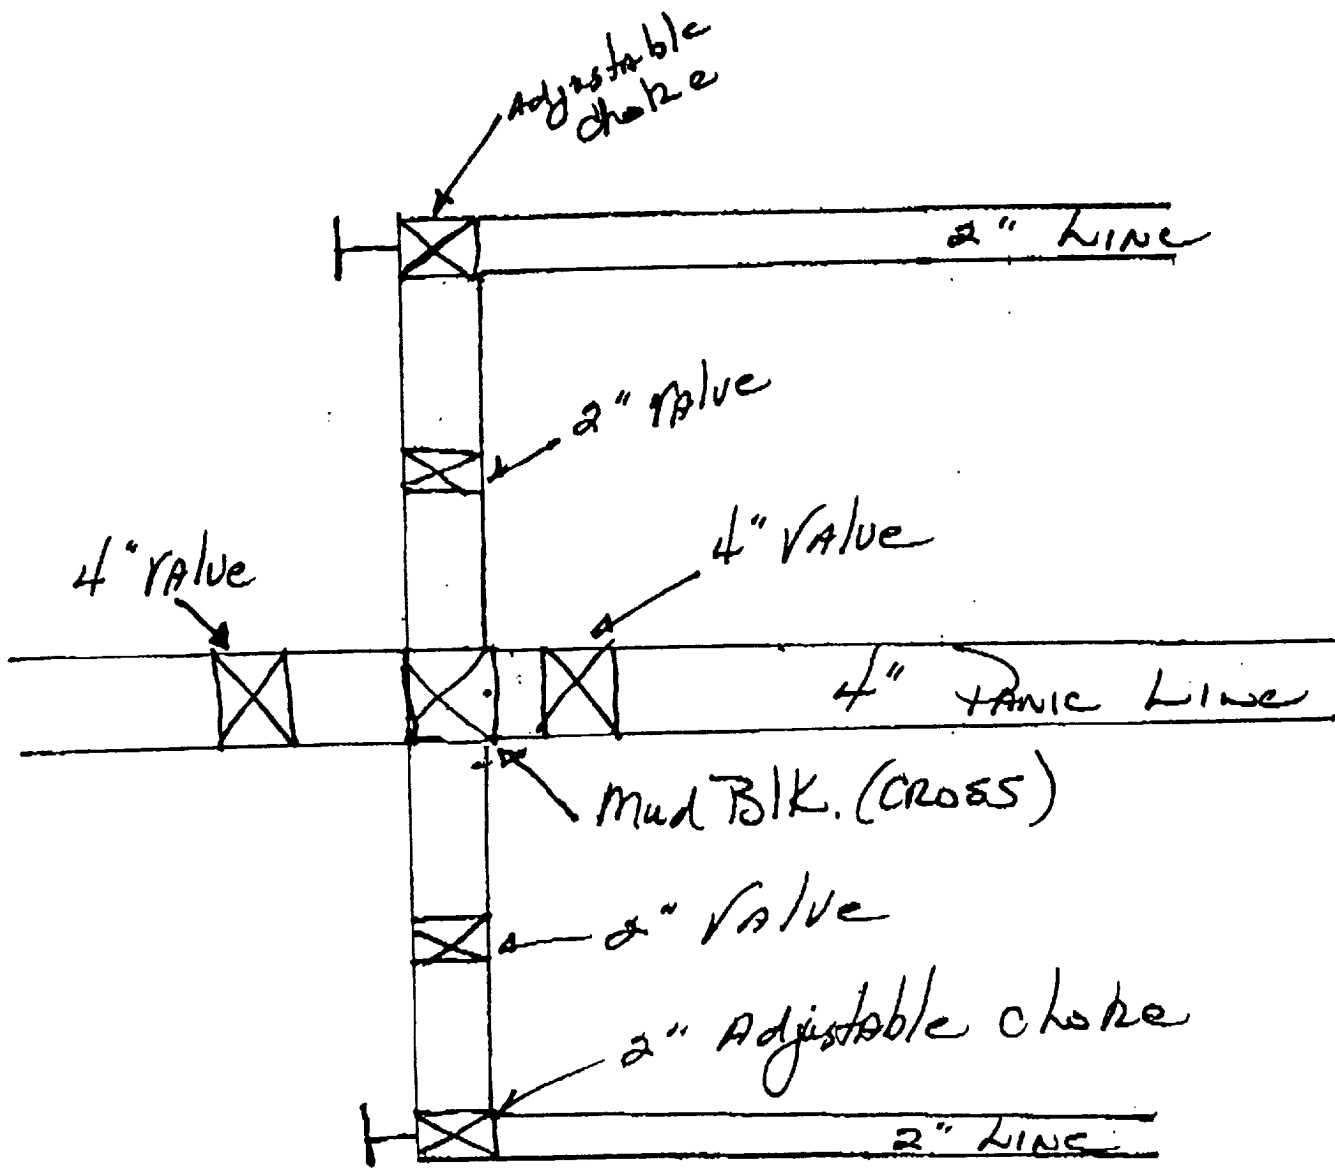 Adjustable
choke
2" LINE
2" VAlve
4" VAlve
4" VAlve
4" PANIC LINE
Mud Blk. (CROSS)
2" VAlve
2" Adjustable choke
2" LINE